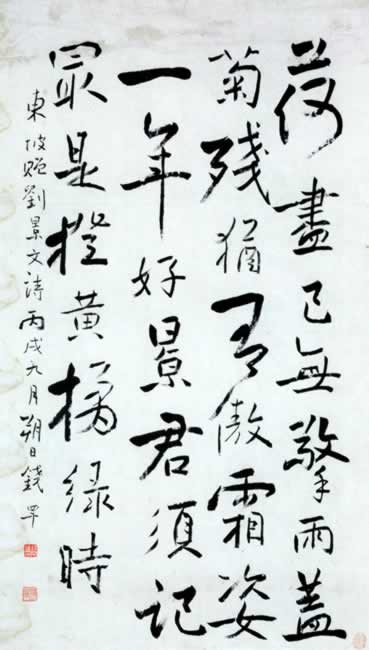 荷盡已無擎雨蓋
菊殘猶有傲霜姿
一年好景君須記
最是橙黃橘綠時
東坡贈劉景文詩丙戌九月朔日錢罕